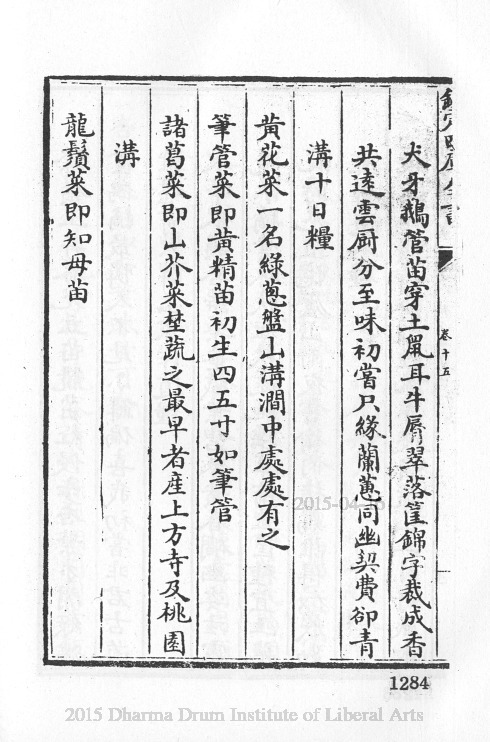 欽定四庫全書
卷十五
犬牙鵝管苗穿土鼠耳牛脣翠落筐錦字裁成香
共遠雲厨分至味初嘗只緣蘭蕙同幽契費卻青
溝十日糧
黄花菜一名綠葱盤山溝澗中處處有之
筆管菜即黄精苗初生四五寸如筆管
諸葛菜即山芥菜埜蔬之最早者産上方寺及桃園
溝
龍鬚菜即知母苗
1284
2015-04-16
2015 Dharma Drum Institute of Liberal Arts